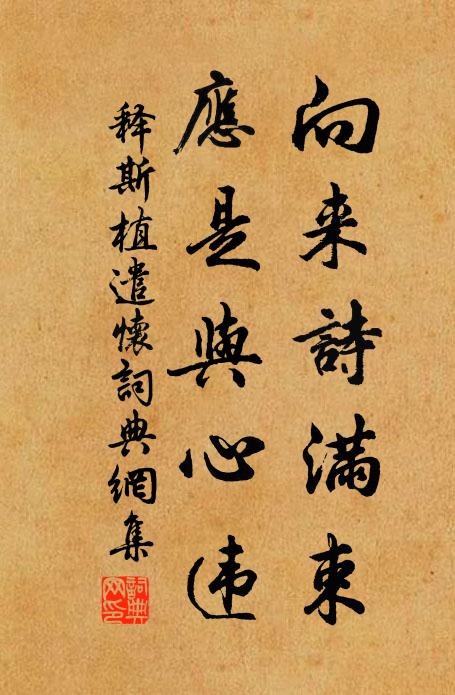 向来詩满束
應是與心违
释斯植遣懷詞典網集
詞典网印